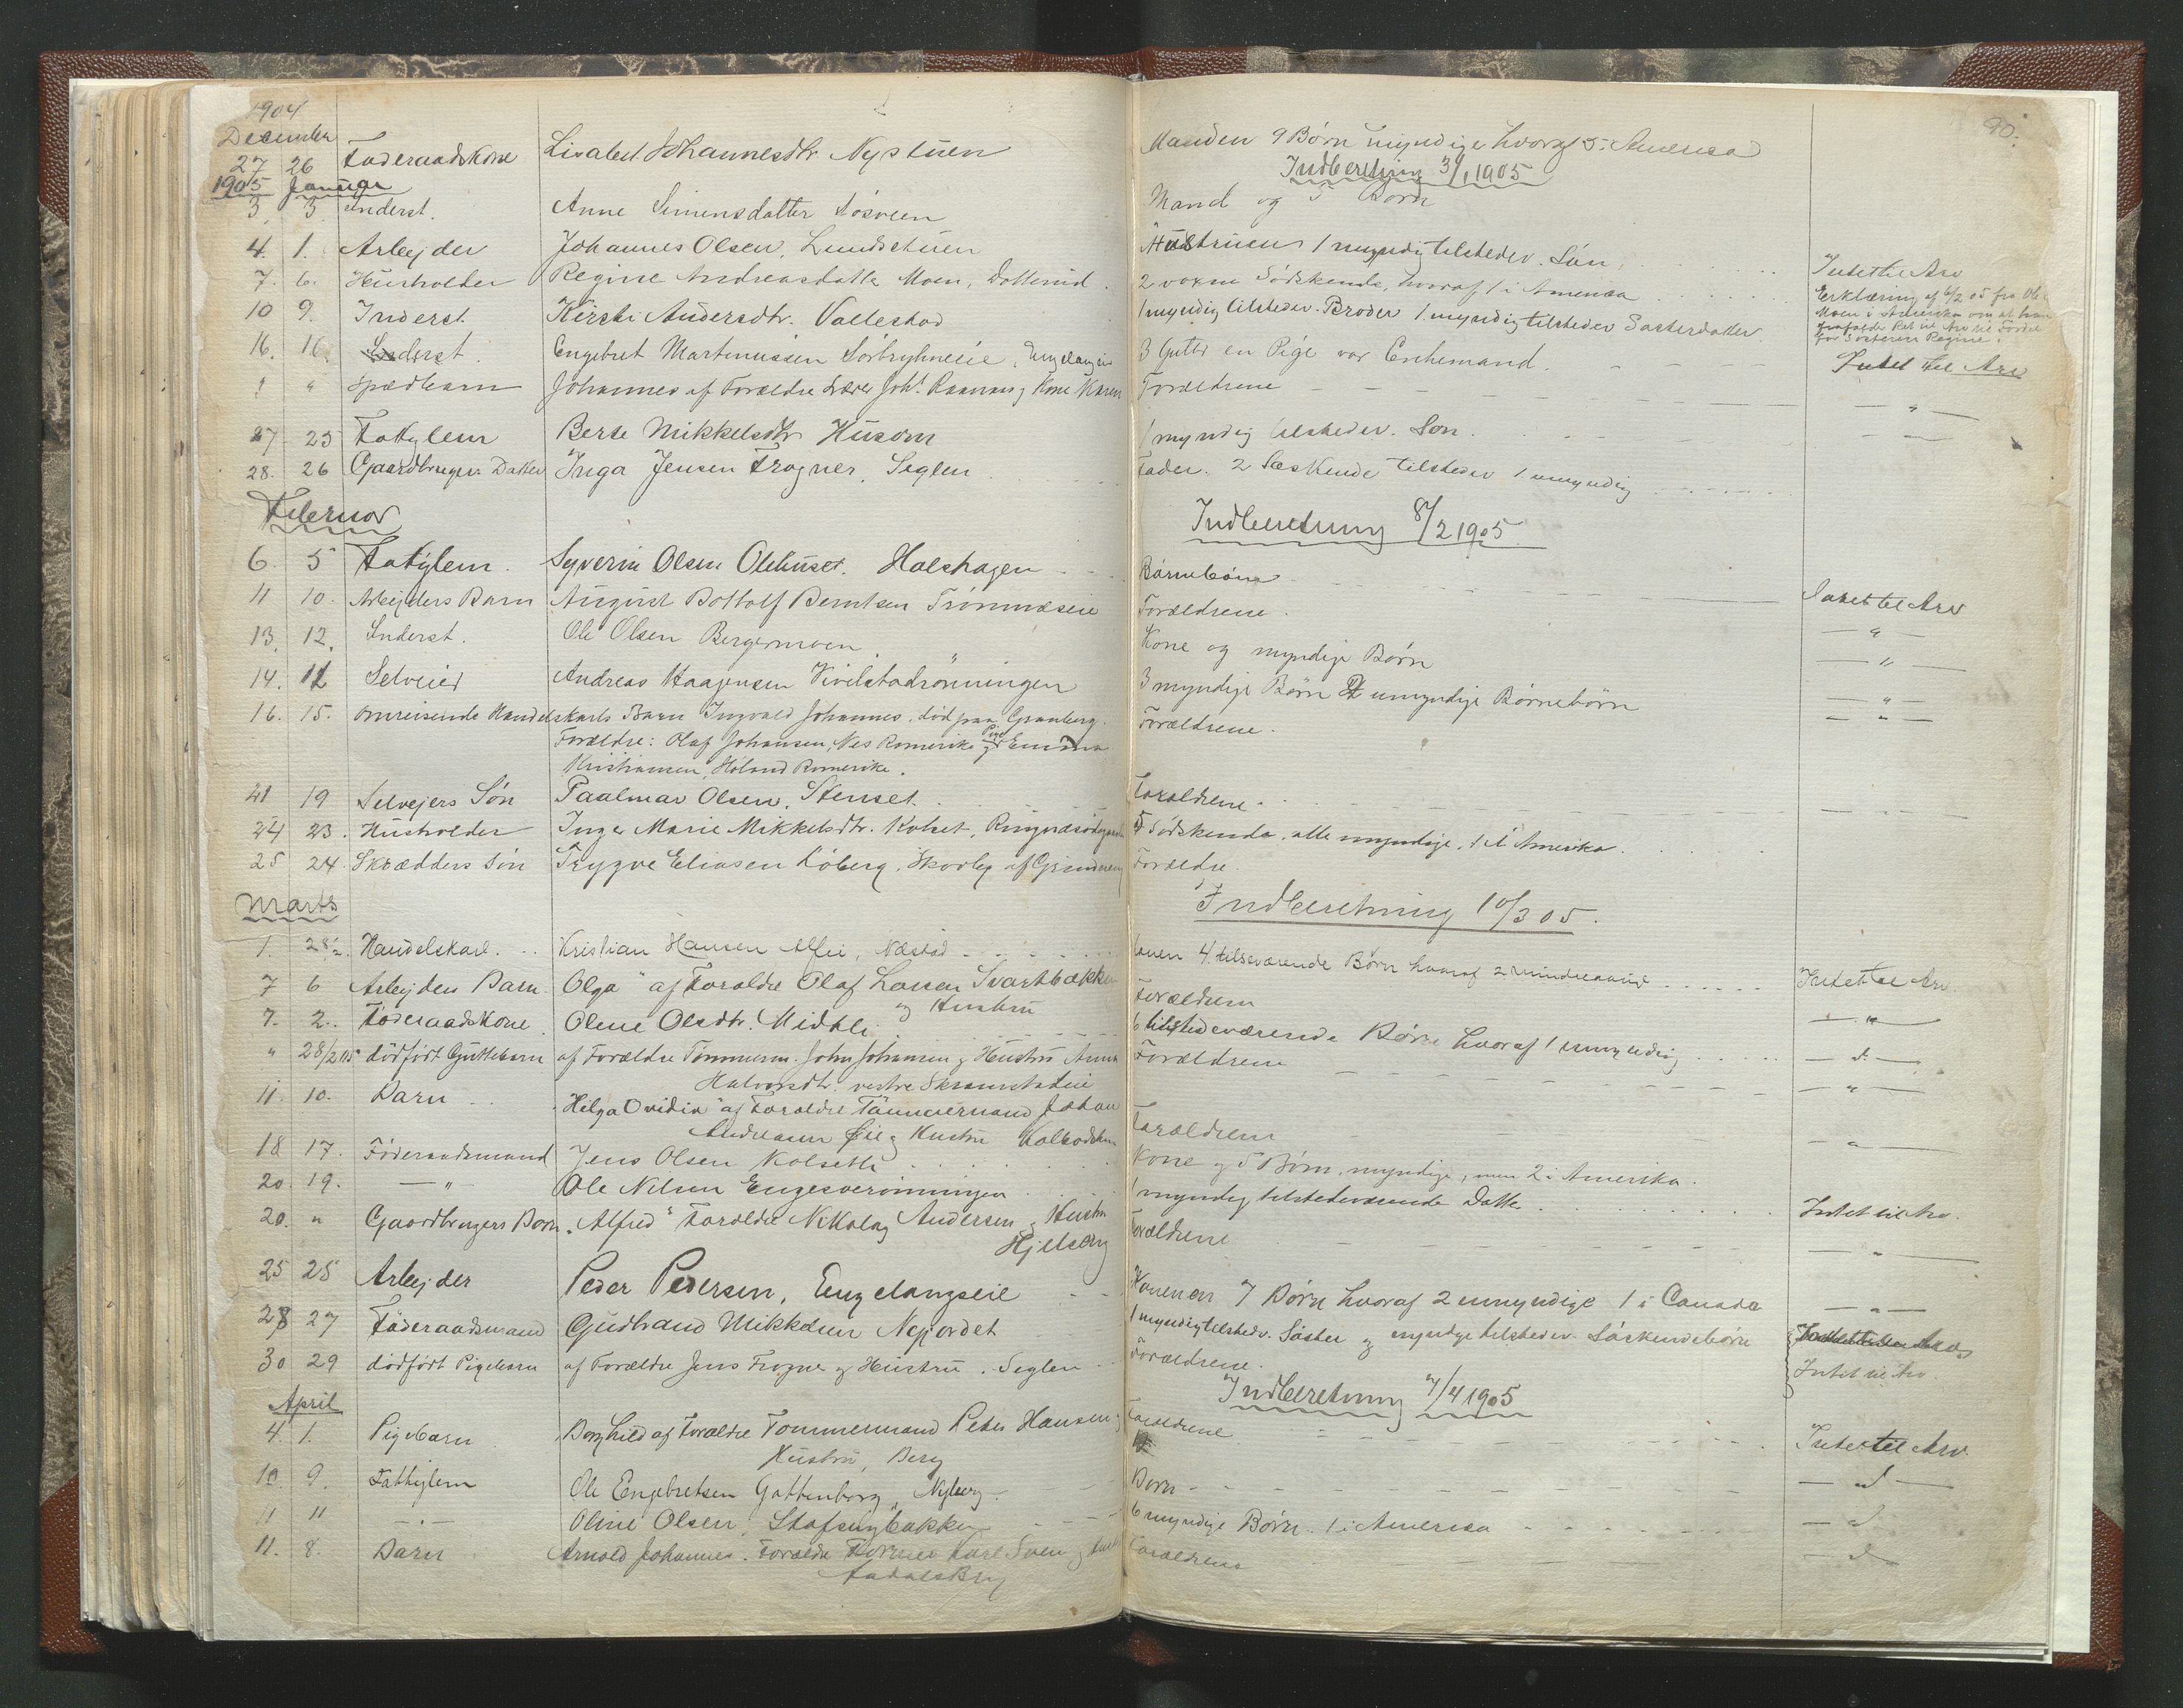 1904
90.
December
27 26 Føderaadskone Lisabet Johannesdtr Nystuen Manden 9 Børn myndige hvoraf 5 i Amerika
Indberetning 3/1 1905
1905 Januar
3 3 Inderst. Anne Simensdatter Mand og 5 Børn
4. 1. Arbejder Johannes Olsen, Lundstuen Hustruen 1 myndig tilstedev. Søn Intet til Arv
7. 6. Husholder Regine Andreasdatter Moen, 2 voxne Sødskende, hvoraf 1 i Amerika Erklæring af 6/2 05 fra Ole
Moen i Amerika om at han
frafalder Ret til Arv til Fordel
for Søsteren Regine.
10 9. Inderst Kirsti Andersdtr. Vallestad 1 myndig tilstedev. Broder 1 myndig tilstedev Søsterdatter
16. 16. Inderst. Engebret Martinussen 3 Gutter en Pige var Enkemand. Intet til Arv
" Spædbarn Johannes af Forældre Joh. og Kone Karen Forældrene — " —
27 25 Fattiglem Berte Mikkelsdtr Husom 1 myndig tilstedev. Søn. — " —
28. 26 Gaardbrugers Datter Inga Jensen Frogner, Seglen Fader. 2 Søskende tilstedev 1 umyndig
Februar
Indberetning 8/2 1905
6. 5 Fattiglem. Syverin Olsen Olehuset. Halshagen Børnebørn Intet til Arv
11 10. Arbejders Barn August Bottolf Berntsen Forældrene. — " —
13. 12. Inderst. Ole Olsen Bergermoen Kone og myndige Børn — " —
14. 12 Selveier Andreas Haagensen Vivelstadrønningen 3 myndige Børn 2 umyndige Børnebørn — " —
16. 15. Omreisende Handelskarls Barn Ingvald Johannes, død paa Granberg. Forældrene. — " —
Forældre: Olaf Johansen, Nes Romerike og Pige Emma
Kristiansen, Høland Romerike.
21 19 Selvejers Søn Paalmar Olsen, Stenset. Forældrene.
24 23. Husholder Inger Marie Mikkelsdtr. Kolset, 5 Sødskende, alle myndige, 1 i Amerika.
25 24. Skrædders Søn Trygve Eliasen Løberg, Forældre.
Marts
Indberetning 10/3 05.
1. 28/2. Handelskarl Kristian Hansen Næstad 4 tilsværende Børn hvoraf 2 mindreaarige Intet til Arv.
7 6 Arbejders Barn "Olga" af Forældre Olaf Larsen Svartbækken Forældrene — " —
og Hustru
7. 2. Føderaadskone Olene Olsdtr. Midtli 6 tilstedeværende Børn hvoraf 1 umyndig — d. —
" 28/2 05 dødført Guttebarn af Forældre Tømmerm. John Johansen og Hustru Anna Forældrene — " —
Halvorsdtr. vestre
11. 10. Barn "Helga Ovidia" af Forældre Tømmermand Johan
og Hustru Forældrene — " —
18 17. Føderaadsmand Jens Olsen Kolsetli Kone og 5 Børn, myndige, men 2 i Amerika.
20. 19. — " — Ole Nilsen Engesverønningen 1 myndig tilstedeværende Datter Intet til Arv.
20. " Gaardbrugers Barn "Alfred" Forældre Nikolay Andersen og Hustru Forældrene — " —
Hjelberg
25 25 Arbejder Peder Pedersen, Engelangseie Konen 7 Børn hvoraf 2 umyndige 1 i Canada — " —
28 27 Føderaadsmand Gudbrand Mikkelsen Nyjordet 1 myndig tilstedv. Søster og myndige tilstedev. Søskendebørn
30 29 dødført Pigebarn af Forældre Jens Frogner og Hustru. Seglen Forældrene. Intet til Arv.
Indberetning 7/4 1905
April
4. 1. Pigebarn Borghild af Forældre Tømmermand Peter Hansen og Forældrene Intet til Arv.
Hustru, Berg
10. 9. Fattiglem Ole Engebretsen Gattenborg, Nyberg Børn — d —
11 11 — " — Oline Olsen, 6 myndige Børn. 1 i Amerika — d —
11. 8. Barn Arnold Johannes. Forældre Karl Forældrene — d —